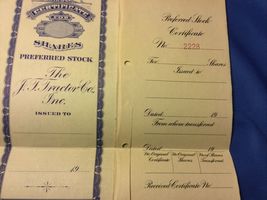 CERTIFICATE
FOR
SHARES
PREFERRED STOCK
The
J.T. Tractor Co.
Inc.
ISSUED TO
19
Preferred Stock
Certificate
No 2228
For Shares
Issued to
Dated 19
From whom transferred
Dated 19
No Original Certificate
No Original Shares
No of Shares Transferred
Received Certificate No